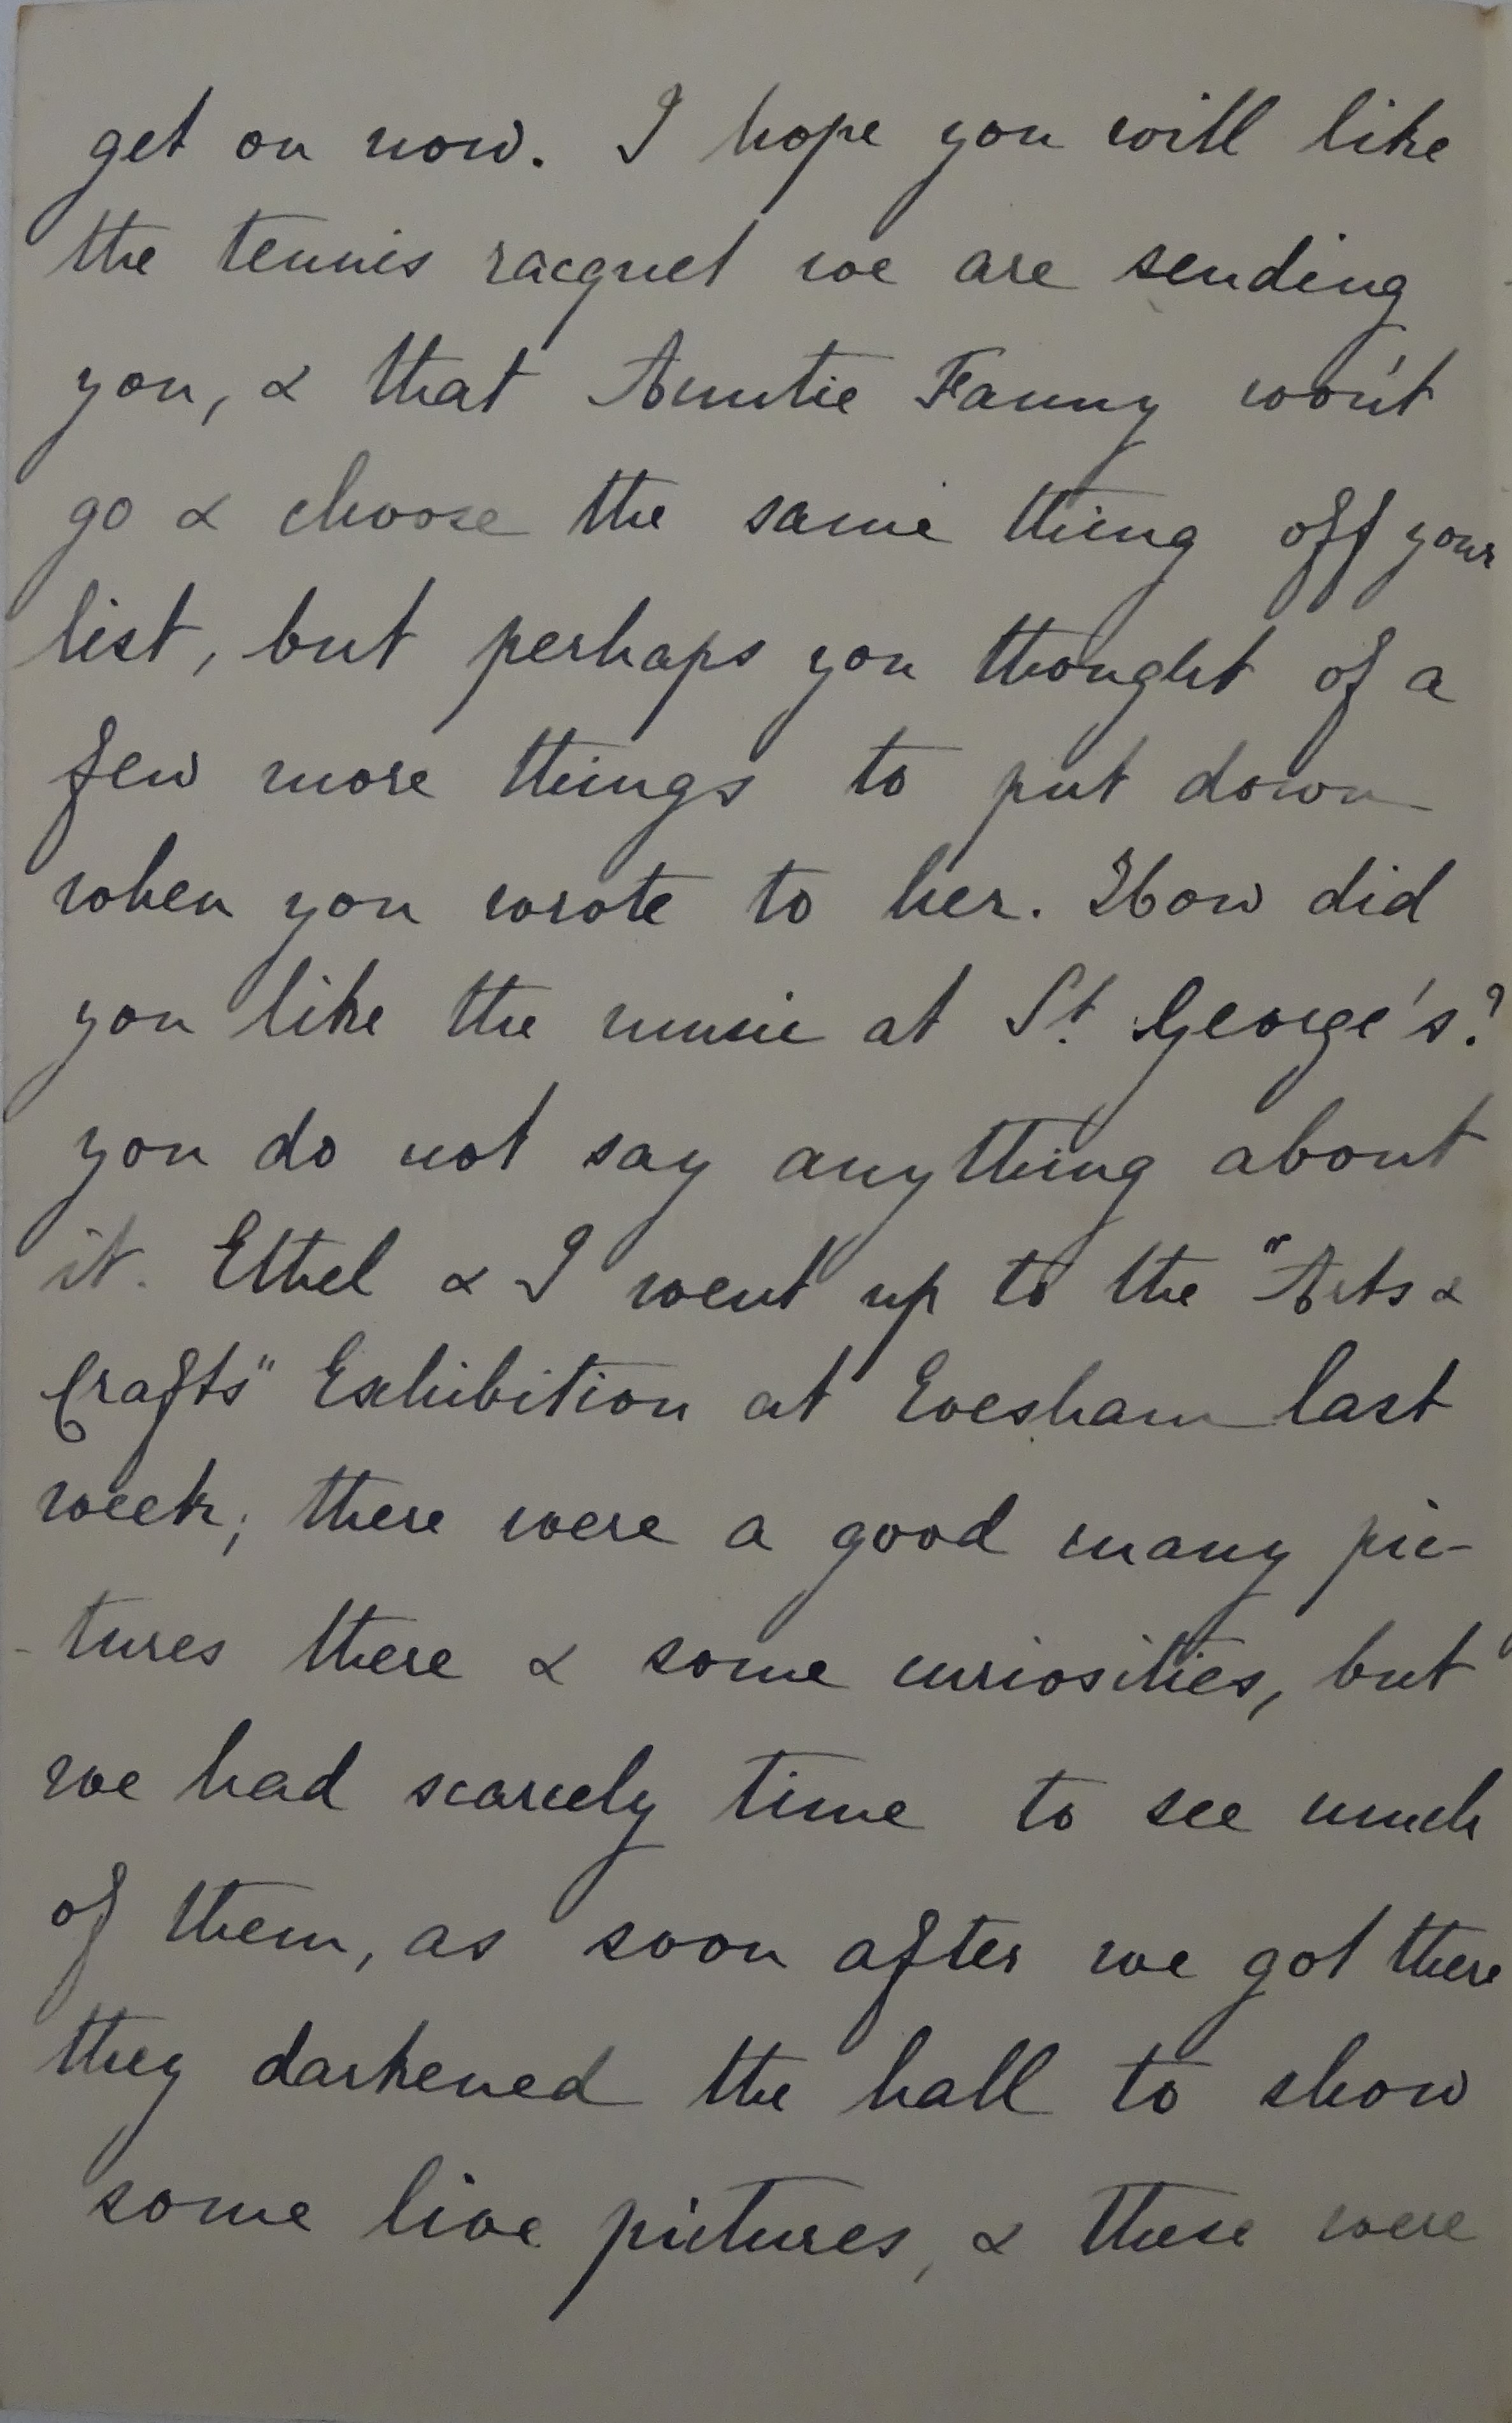 get on now. I hope you will like
the tennis racquet we are sending
you, & that Auntie Fanny won't
go & choose the same thing off your
list, but perhaps you thought of a
few more things to put down
when you wrote to her. How did
you like the music at St. George's?
you do not say anything about
it. Ethel & I went up to the "Arts &
Crafts" Exhibition at Evesham last
week; there were a good many pic-
-tures there & some curiosities, but
we had scarcely time to see much
of them, as soon after we got there
they darkened the hall to show
some live pictures, & these were